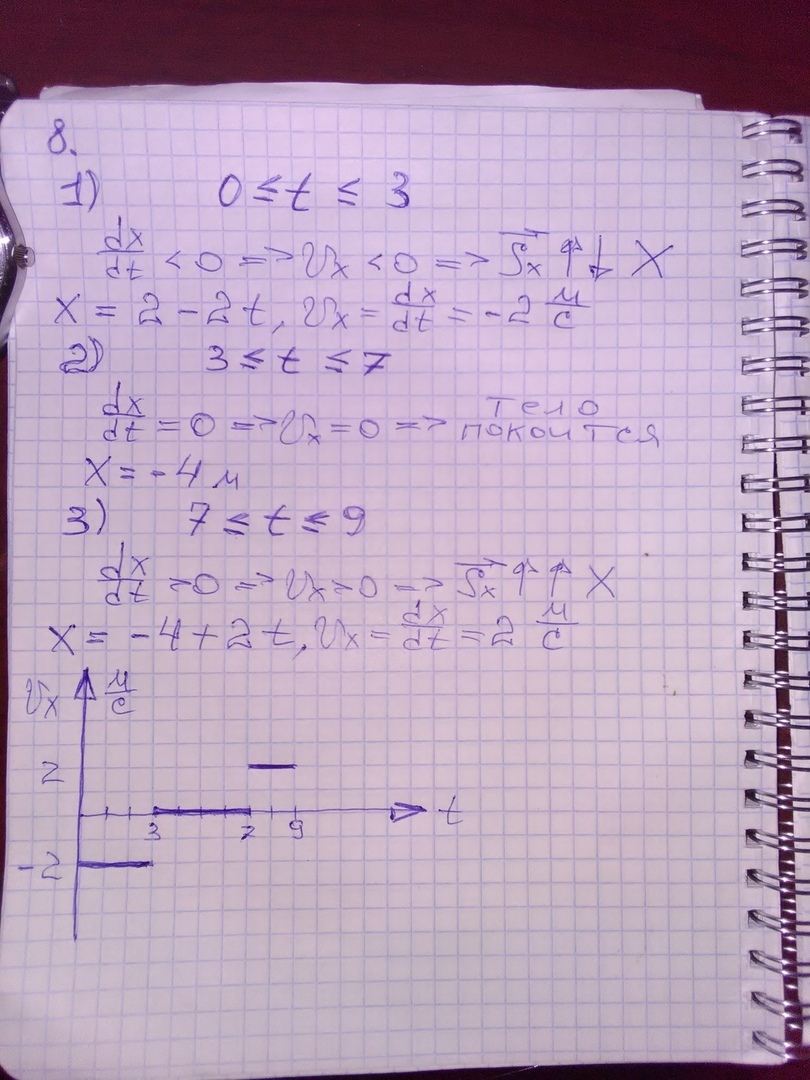 8.
1) 0 ≤ t ≤ 3
dx/dt < 0 => Vx < 0 => Sx ↑↓ X
X = 2 - 2t, Vx = dx/dt = -2 м/с
2) 3 ≤ t ≤ 7
dx/dt = 0 => Vx = 0 => тело покоится
X = -4 м
3) 7 ≤ t ≤ 9
dx/dt > 0 => Vx > 0 => Sx ↑↑ X
X = -4 + 2t, Vx = dx/dt = 2 м/с
Vx м/с
2
3 7 9 t
-2